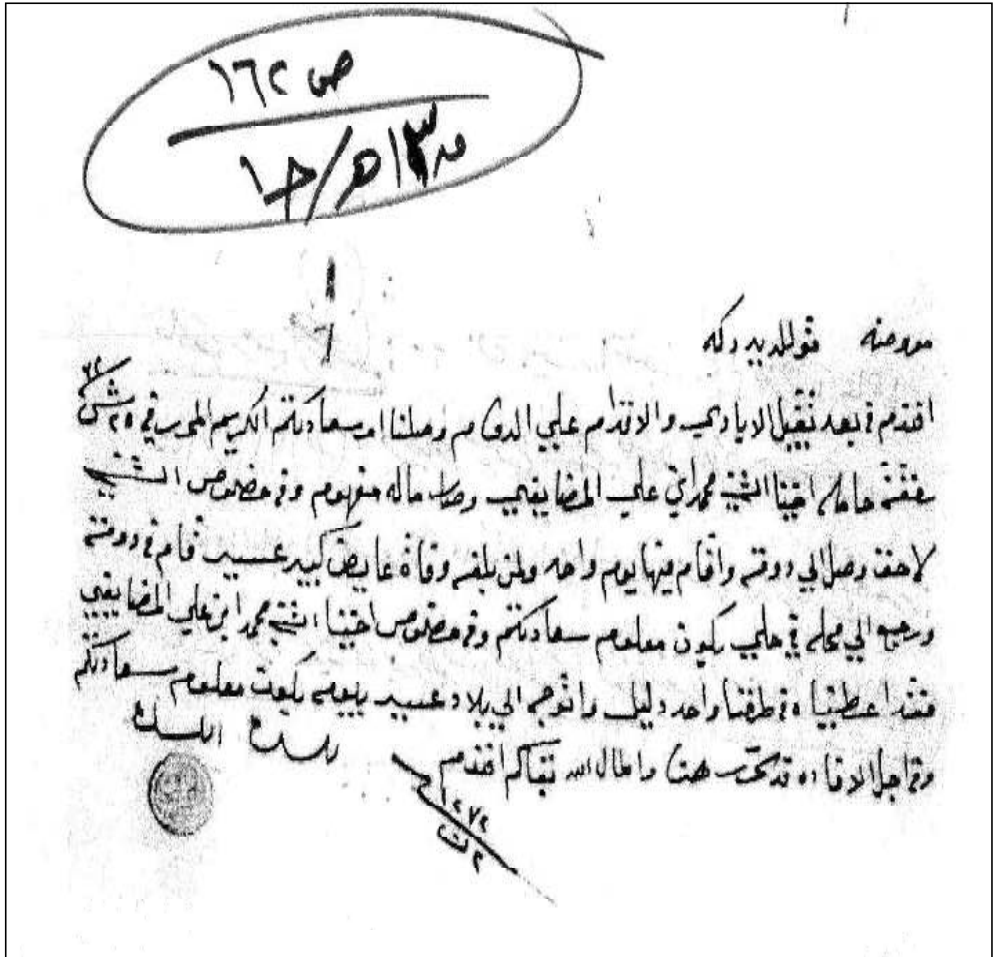 ص ١٦٢
١٣هـ/ح١
معروضه
افندم في بعد تقبيل الايادي والاقدام علي الدوام وصلنا امر سعادتكم الكريم المحرر في ٢٥ ش
حامله اخينا الشيخ محمد ابن علي المضايفي وصار ماله مفهوم وفي خصوص الشيخ
لاحق وصل الي دوقه واقام فيها يوم واحد ولمن بلغه وفاة عايض كبير عسير قام في دوقته
ورجع الي محله في حلي يكون معلوم سعادتكم وفي خصوص اخينا الشيخ محمد ابن علي المضايفي
فقد اعطيناه في طرفنا واحد دليل واتوجه الي بلاد عسير يكون معلوم سعادتكم
وفي اجل الافاده قد تحرر هذا واطال الله بقاكم افندم
١٢٧٢